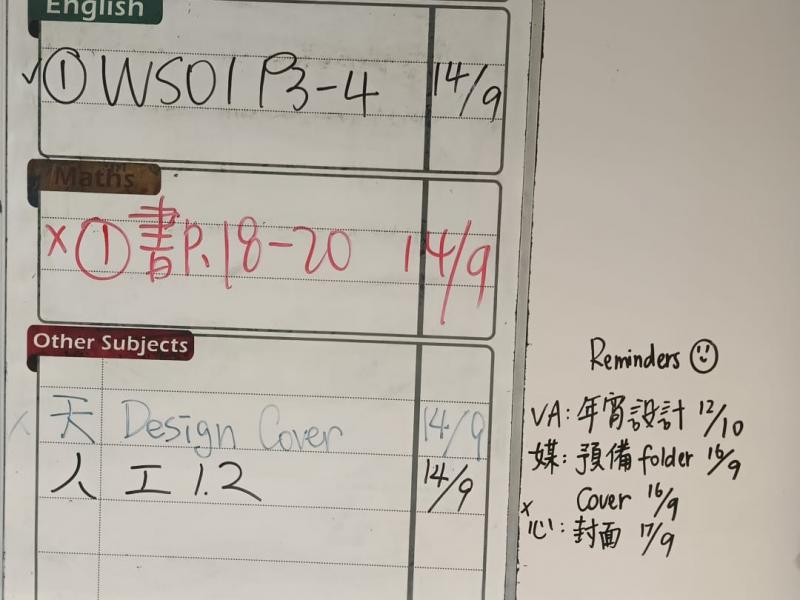 English
✓ ① WS01 P3-4 14/9
Maths
x ① 書P.18-20 14/9
Other Subjects
x 天 Design Cover 14/9
人 工1.2 14/9
Reminders ☺
VA: 年宵設計 12/10
媒: 預備 folder 16/9
Cover 16/9
x 心: 封面 17/9